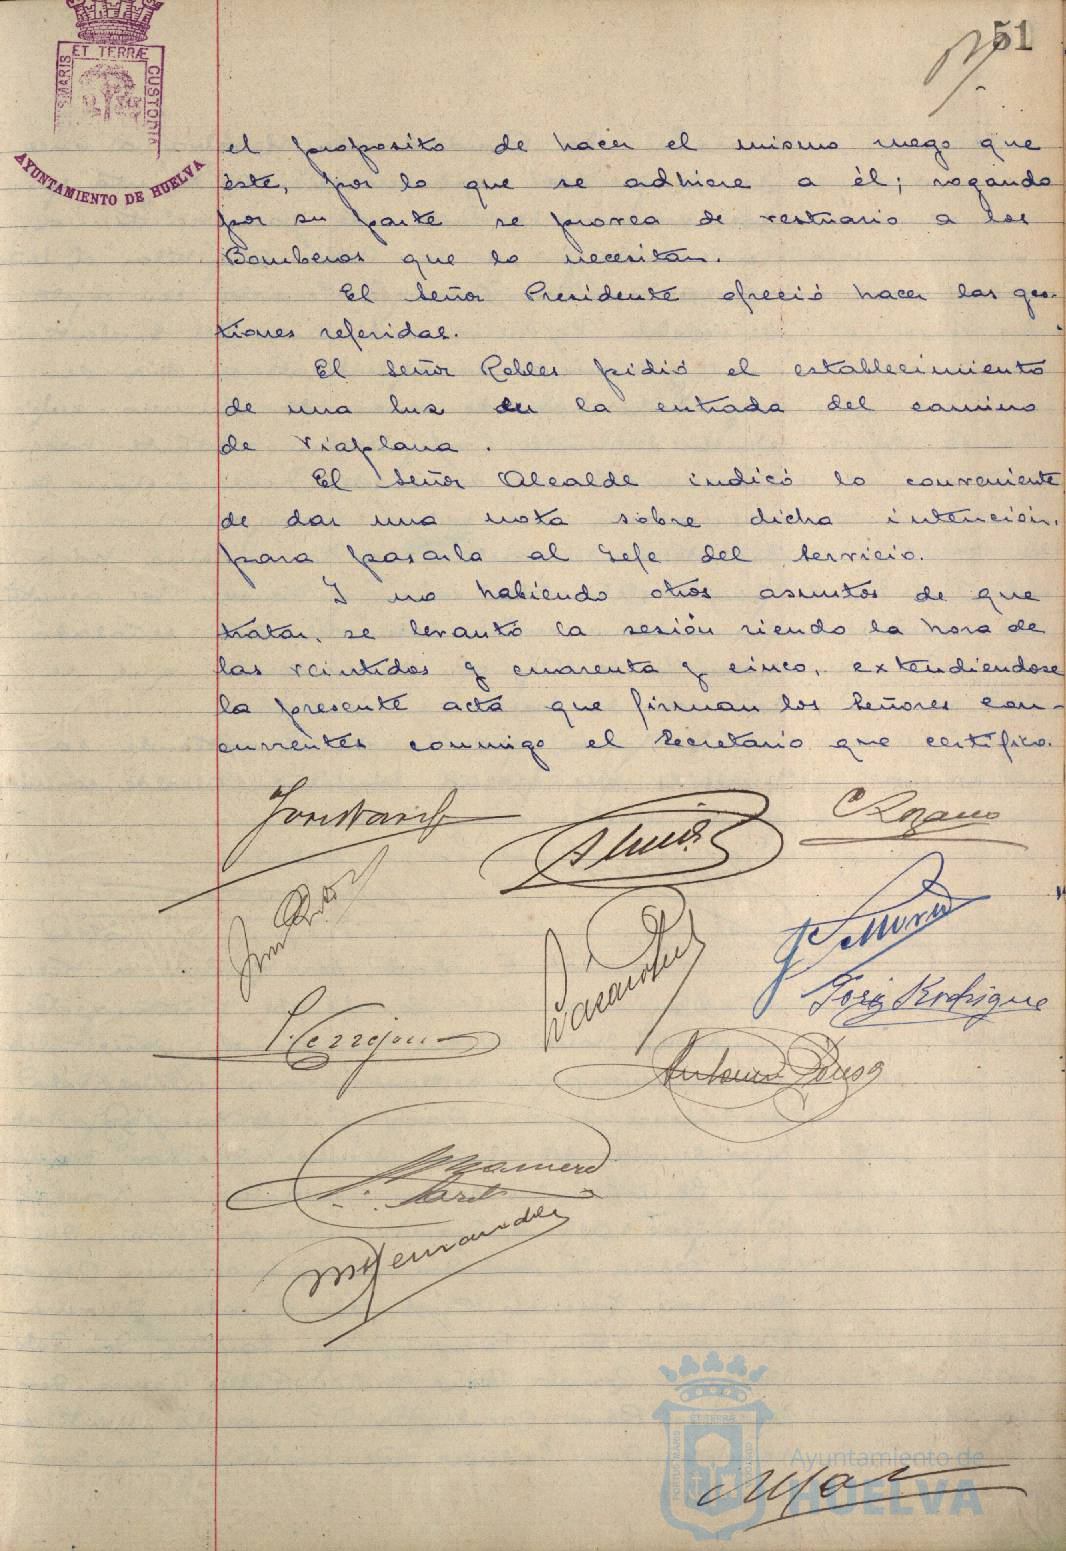 51
ET TERRÆ
S MARIS
CUSTODIA
AYUNTAMIENTO DE HUELVA
el proposito de hacer el mismo ruego que
éste, por lo que se adhiere a él; rogando
por su parte se provea de vestuario a los
Bomberos que lo necesitan.
El Señor Presidente ofreció hacer las ges-
tiones referidas.
El Señor Robles pidió el establecimiento
de una luz en la entrada del camino
de Viaplana.
El Señor Alcalde indicó lo conveniente
de dar una nota sobre dicha intención,
para pasarla al Jefe del Servicio.
Y no habiendo otros asuntos de que
tratar, se levantó la sesión siendo la hora de
las veintidos y cuarenta y cinco, extendiendose
la presente acta que firman los Señores con-
currentes conmigo el Secretario que certifico.
Rozano
J. Moreno
José Rodrigue
Cerrejon
Antonio Pousa
Zamera
M Hernandez
Ayuntamiento de
HUELVA